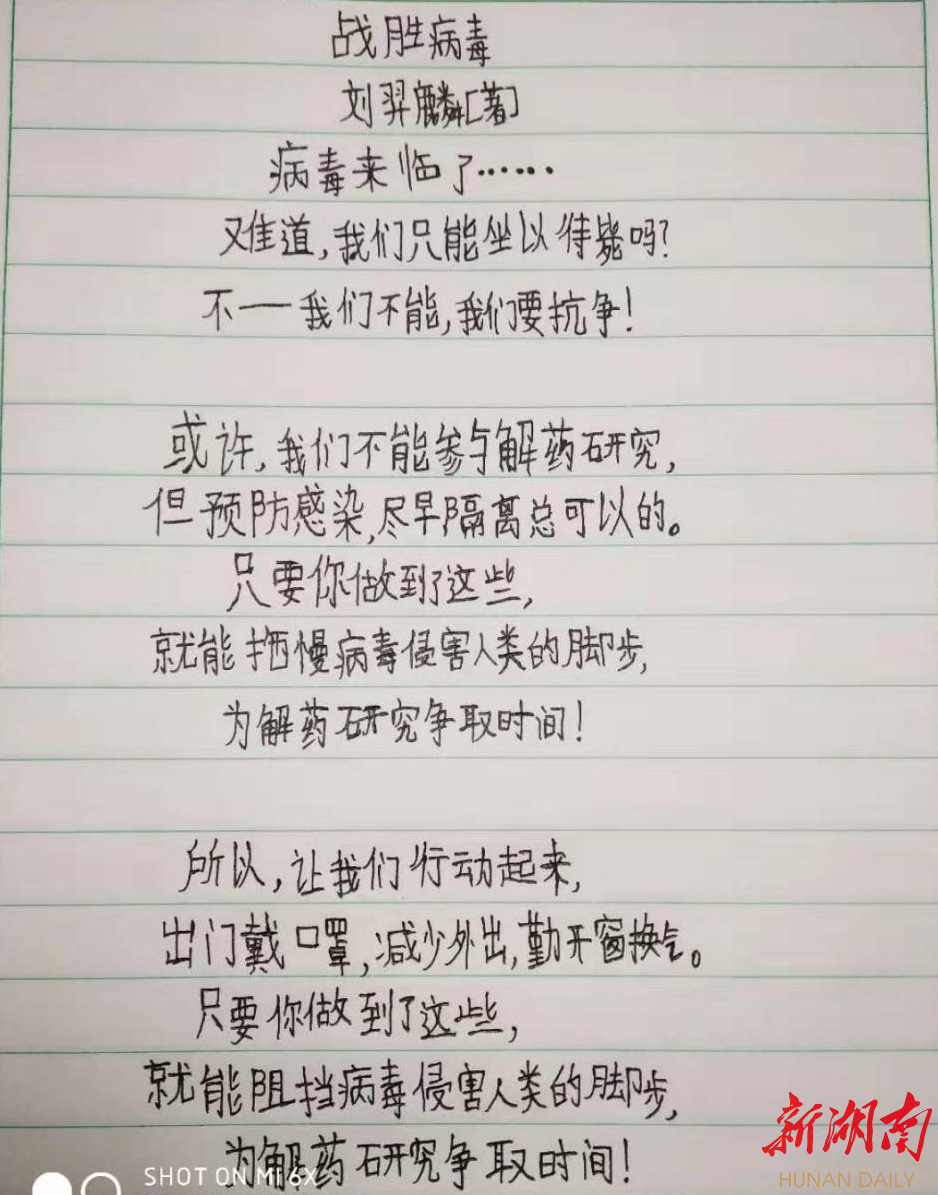 战胜病毒
刘羿麟[著]
病毒来临了……
难道,我们只能坐以待毙吗?
不——我们不能,我们要抗争!
或许,我们不能参与解药研究,
但预防感染,尽早隔离总可以的。
只要你做到了这些,
就能拖慢病毒侵害人类的脚步,
为解药研究争取时间!
所以,让我们行动起来,
出门戴口罩,减少外出,勤开窗换气。
只要你做到了这些,
就能阻挡病毒侵害人类的脚步,
为解药研究争取时间!
SHOT ON MI 6X
新湖南
HUNAN DAILY